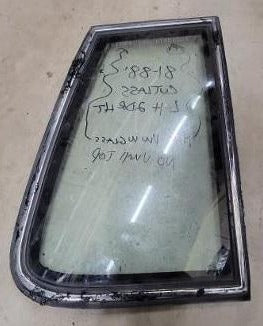 81-88'
CUTLASS
L-H 2DR HT
GLASS
NO VINYL TOP